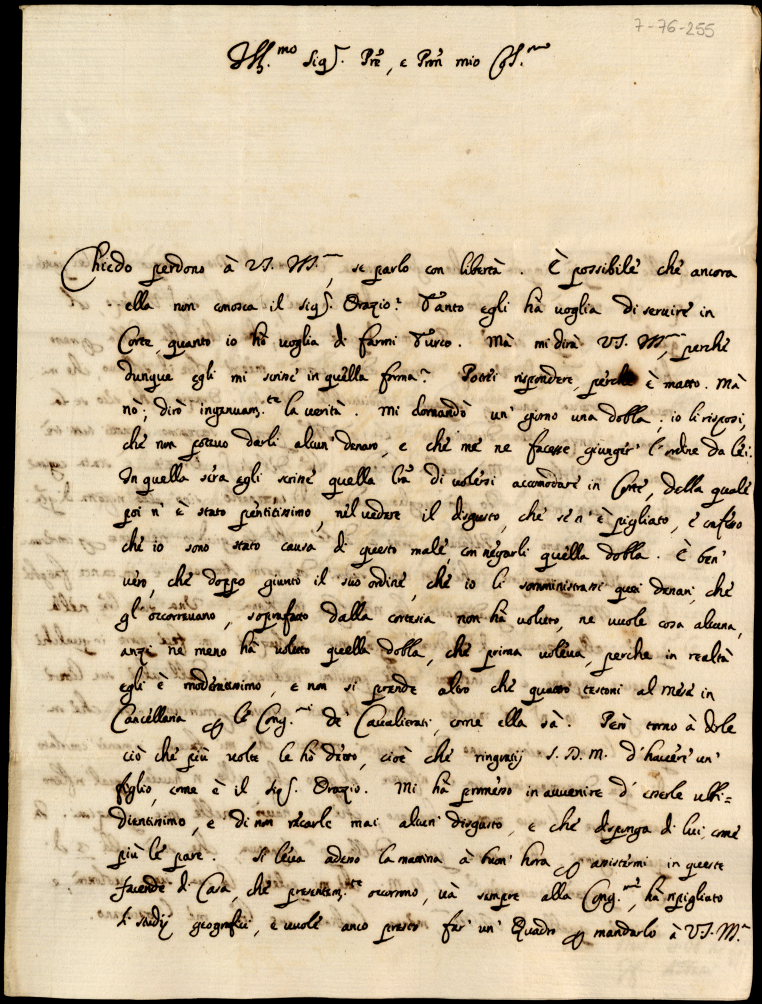 7-76-255
Ill.mo Sig.r Prè, e Pron mio Col.mo
Chiedo perdono à V.S. Ill.ma, se parlo con libertà. È possibile che ancora
ella non conosca il sig.r Orazio? Tanto egli hà voglia di seruire in
Corte, quanto io hò uoglia di farmi Turco. Mà mi dirà V.S. Ill.ma, perche
dunque egli mi scriue in quella forma? Potrei rispondere, perche è matto. Mà
nò; dirò ingenuam.te la uerità. Mi domandò un' giorno una dobla; io li risposi,
che non poteuo darli alcun' denaro, e che me ne facesse giunger' l'ordine da lei.
In quella sera egli scriue quella lrà di uolersi accomodare in Corte, della quale
poi n' è stato pentitissimo, nel uedere il disgusto, che se n' è pigliato, e confesso
che io sono stato causa di questo male, con negarli quella dobla. È ben'
uero, che doppo giunto il suo ordine, che io li somministrassi quei denari, che
gl' occorreuano, soprafatto dalla cortesia non hà uoluto, ne uuole cosa alcuna,
anzi ne meno hà uoluto quella dobla, che prima uoleua, perche in realtà
egli è modestissimo, e non si prende altro che quattro testoni al mese in
Cancellaria p le Cong.ni de' Caualierati, come ella sà. Però torno à dirle
ciò che più uolte le hò detto, cioè che ringratij S.D.M. d'hauere un'
figlio, come è il sig.r Orazio. Mi hà promesso in auuenire d' esserle ubbi=
dientissimo, e di non recarle mai alcun' disgusto, e che disponga di lui, come
più le pare. Si leua adesso la mattina à buon' hora p assistermi in queste
facende di Casa, che presentem.te occorrono, uà sempre alla Cong.ne, hà ripigliato
li studij geografici, e uuole anco presto far' un' Quadro p mandarlo à V.S. Ill.ma